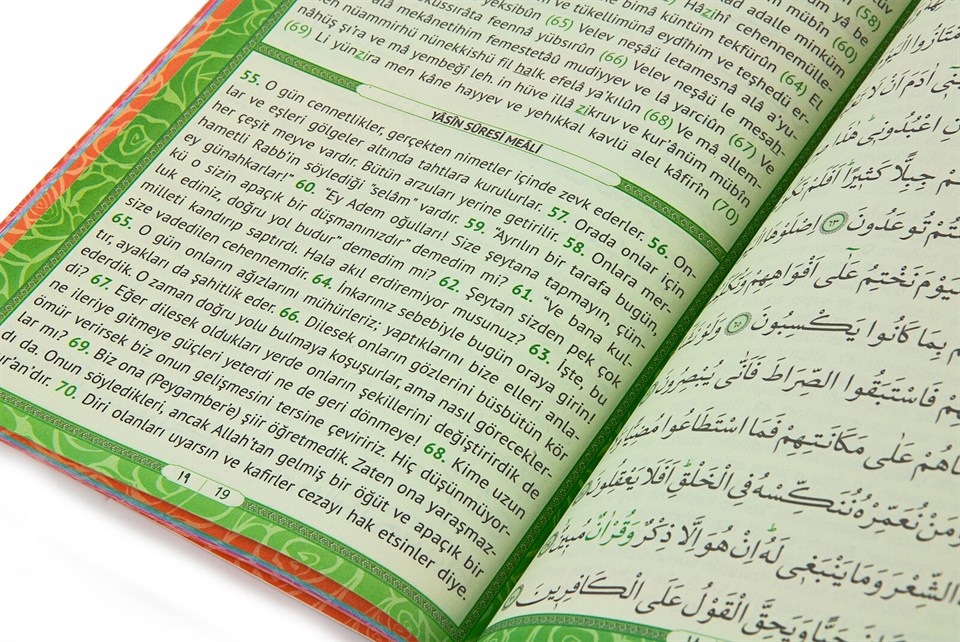 (58)
yâ be
mübîn
adalle minküm
(60)
Hâzihî cehennemülle
bimâ küntüm tekfürûn
yeksibûn (65) Velev neşâü letamesnâ alâ a'yu-
(64) El
ve tükellimünâ eydîhim ve teşhedü
(66) Velev neşâü le mesah-
feennâ yübsırûn
alâ mekânetihim femestetâû mudiyyev ve lâ yarciûn (67) Ve
nüammirhü nünekkishü fil halk. efelâ ya'kılûn (68) Ve mâ allem-
nâhüş şi'ra ve mâ yembeğî leh. in hüve illâ zikruv ve kur'ânüm mübîn
(69) Li yünzira men kâne hayyev ve yehıkkal kavlü alel kâfirîn (70)
YÂSÎN SÛRESİ MEÂLİ
55. O gün cennetlikler, gerçekten nimetler içinde zevk ederler. 56. On-
lar ve eşleri gölgeler altında tahtlara kurulurlar. 57. Orada onlar için
her çeşit meyve vardır. Bütün arzuları yerine getirilir. 58. Onlara mer-
hametli Rabb'in söylediği "selâm" vardır. 59. "Ayrılın bir tarafa bugün,
ey günahkarlar!" 60. "Ey Adem oğulları! Size şeytana tapmayın, çün-
kü o sizin apaçık bir düşmanınızdır" demedim mi? 61. "Ve bana kul-
luk ediniz, doğru yol budur" demedim mi? 62. Şeytan sizden pek çok
milleti kandırıp saptırdı. Hala akıl erdiremiyor musunuz? 63. İşte, bu
size vadedilen cehennemdir. 64. İnkarınız sebebiyle bugün oraya girin!
65. O gün onların ağızlarını mühürleriz; yaptıklarını bize elleri anla-
tır, ayakları da şahitlik eder. 66. Dilesek onların gözlerini büsbütün kör
ederdik. O zaman doğru yolu bulmaya koşuşurlar, ama nasıl görecekler-
di? 67. Eğer dilesek oldukları yerde onların şekillerini değiştirirdik de
ne ileriye gitmeye güçleri yeterdi ne de geri dönmeye! 68. Kime uzun
ömür verirsek biz onun gelişmesini tersine çeviririz. Hiç düşünmüyor-
lar mı? 69. Biz ona (Peygamber'e) şiir öğretmedik. Zaten ona yaraşmaz-
dı da. Onun söyledikleri, ancak Allah'tan gelmiş bir öğüt ve apaçık bir
ur'an'dır. 70. Diri olanları uyarsın ve kafirler cezayı hak etsinler diye.
١٩ 19
ادَمَ اَنْ لَا
اعْبُدُونٖى هٰذَا
جِبِلًّا كَثٖيرًا اَفَلَمْ
تُوعَدُونَ ﴿٦٣﴾ اِصْلَوْهَا
لْيَوْمَ نَخْتِمُ عَلٰٓى اَفْوَاهِهِمْ وَتُكَلِّ
بِمَا كَانُوا يَكْسِبُونَ ﴿٦٥﴾ وَلَوْ
فَاسْتَبَقُوا الصِّرَاطَ فَاَنّٰى يُبْصِرُونَ
عَلٰى مَكَانَتِهِمْ فَمَا اسْتَطَاعُوا مُضِيًّا
وَمَنْ نُعَمِّرْهُ نُنَكِّسْهُ فِى الْخَلْقِؕ اَفَلَا يَعْقِلُونَ
الشِّعْرَ وَمَا يَنْبَغٖى لَهُؕ اِنْ هُوَ اِلَّا ذِكْرٌ وَقُرْاٰنٌ مُبٖينٌ
حَيًّا وَيَحِقَّ الْقَوْلُ عَلَى الْكَافِرٖينَ